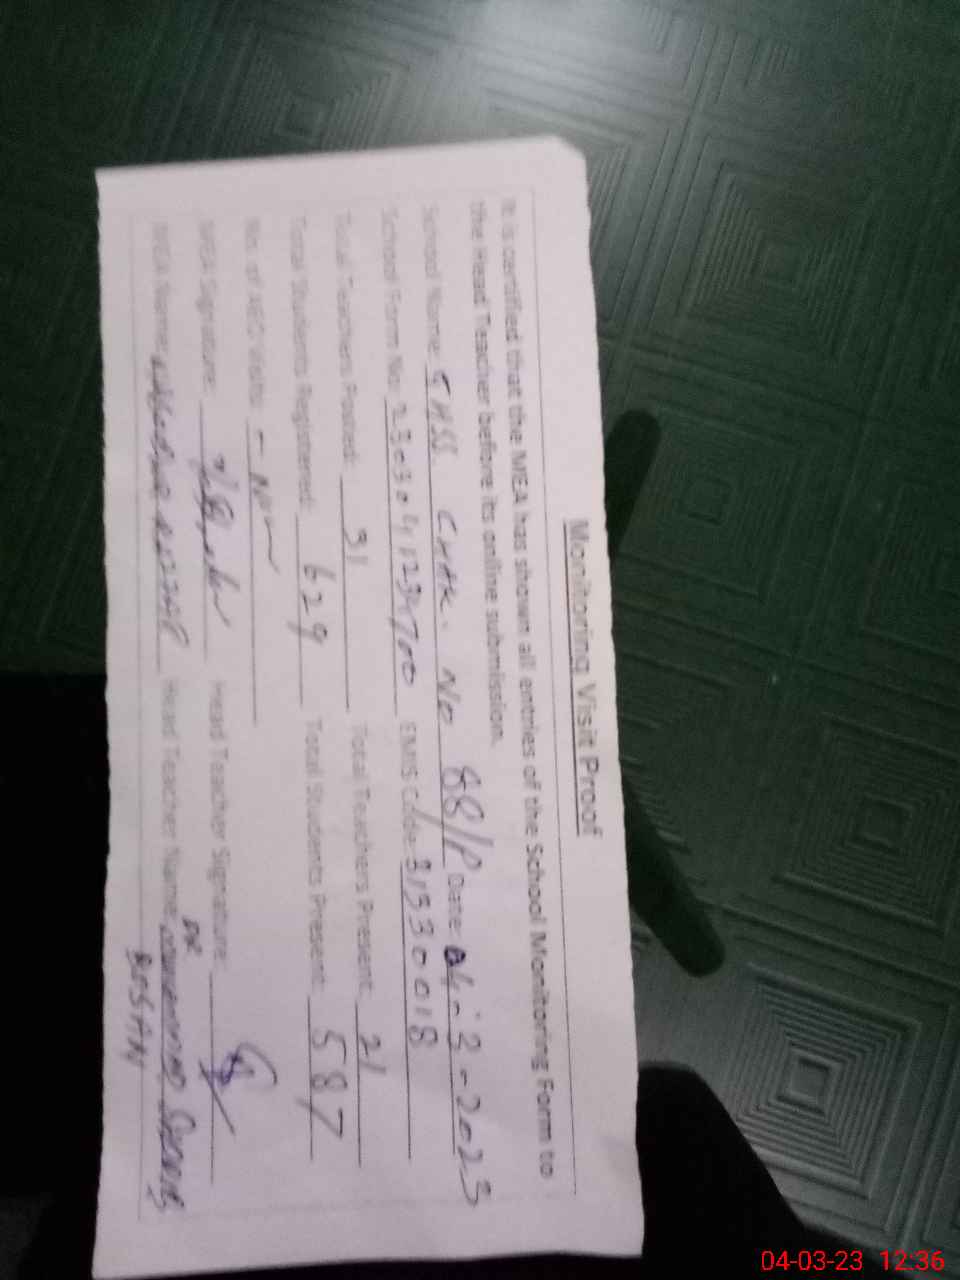 Monitoring Visit Proof
It is certified that the MEA has shown all entries of the School Monitoring Form to
the Head Teacher before its online submission.
School Name: GHSS. CHAK. No 88/P Date: 04-3-2023
School Form No: EMIS Code: 31330018
Total Teachers Posted: 31 Total Teachers Present: 21
Total Students Registered: 629 Total Students Present: 587
No. of AEO Visits:
MEA Signature: Head Teacher Signature:
MEA Name: Head Teacher Name: DR
04-03-23 12:36